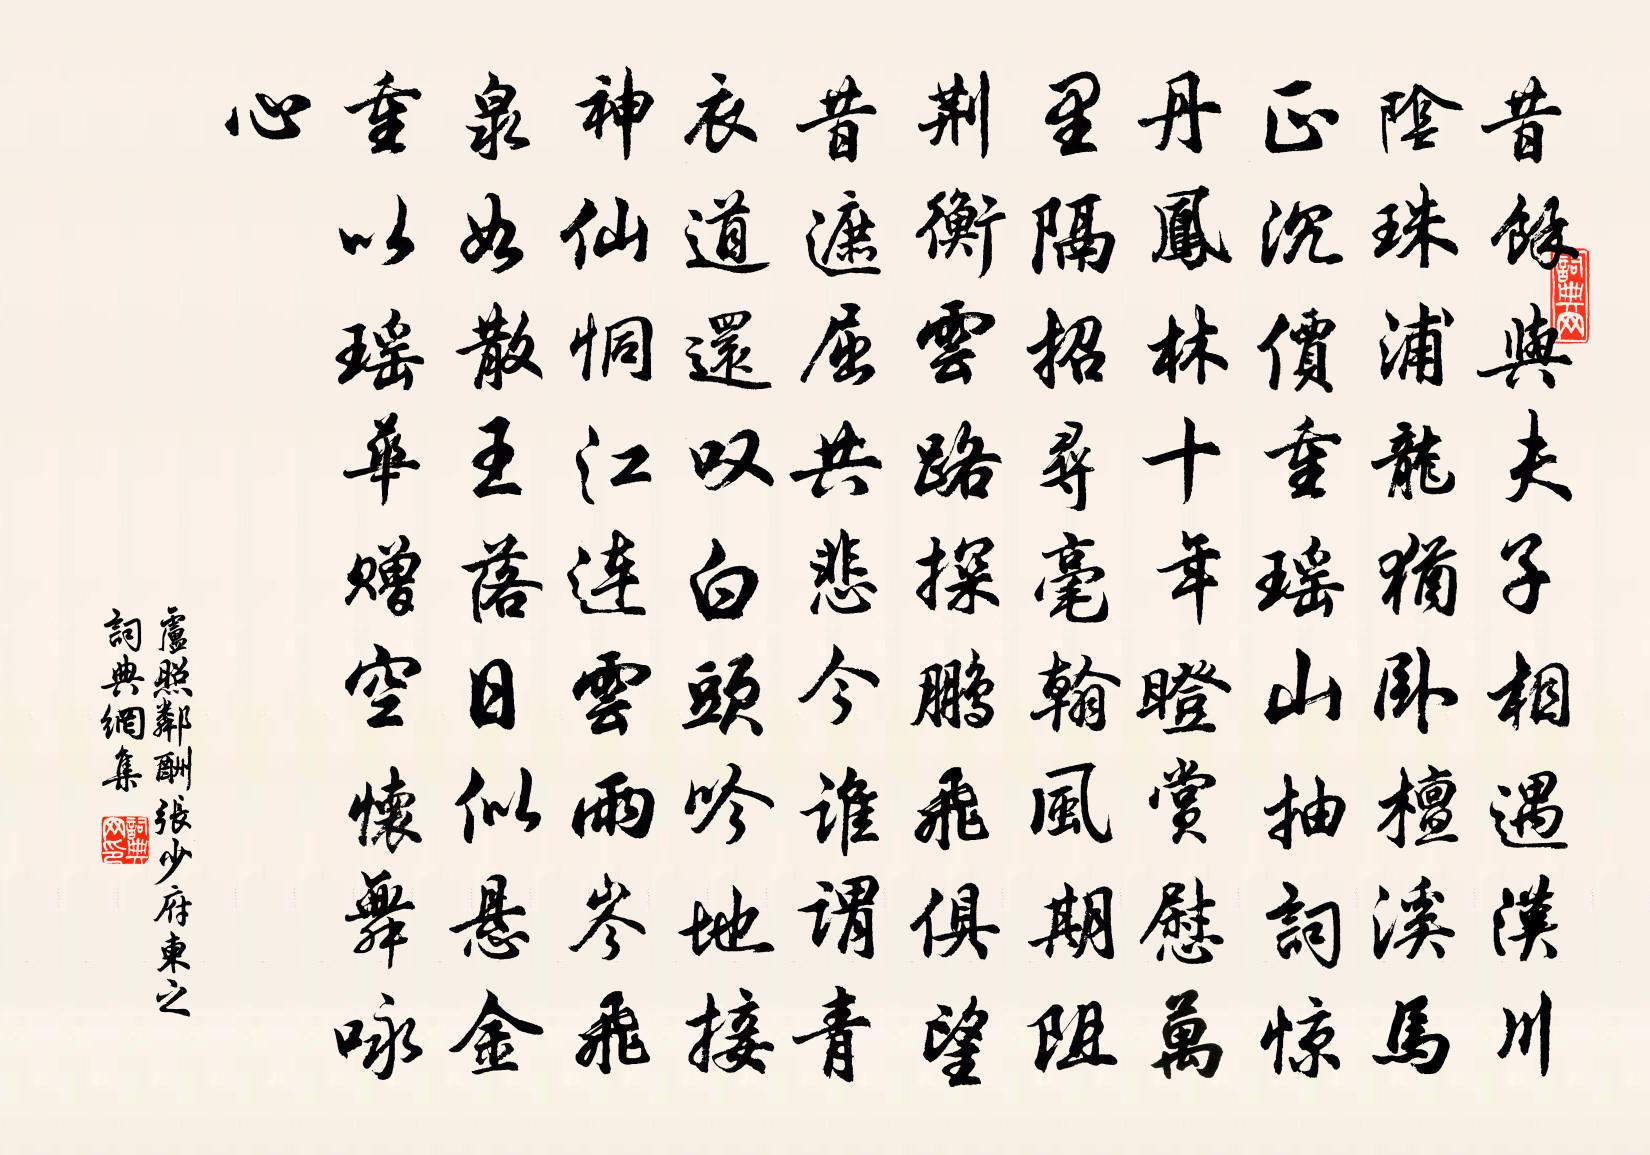 昔餘與夫子相遇漢川
陰珠浦龍猶臥檀溪馬
正沉價重瑶山抽詞惊
丹鳳林十年瞪賞慰萬
里隔招尋毫翰風期阻
荆衡雲路探鵬飛俱望
昔遮屈共悲今誰謂青
衣道還叹白頭吟地接
神仙恫江連雲雨岑飛
泉如散玉落日似悬金
重以瑶華赠空懷舞咏
心
盧照鄰酬張少府東之
詞典網集
詞典网
詞典网印